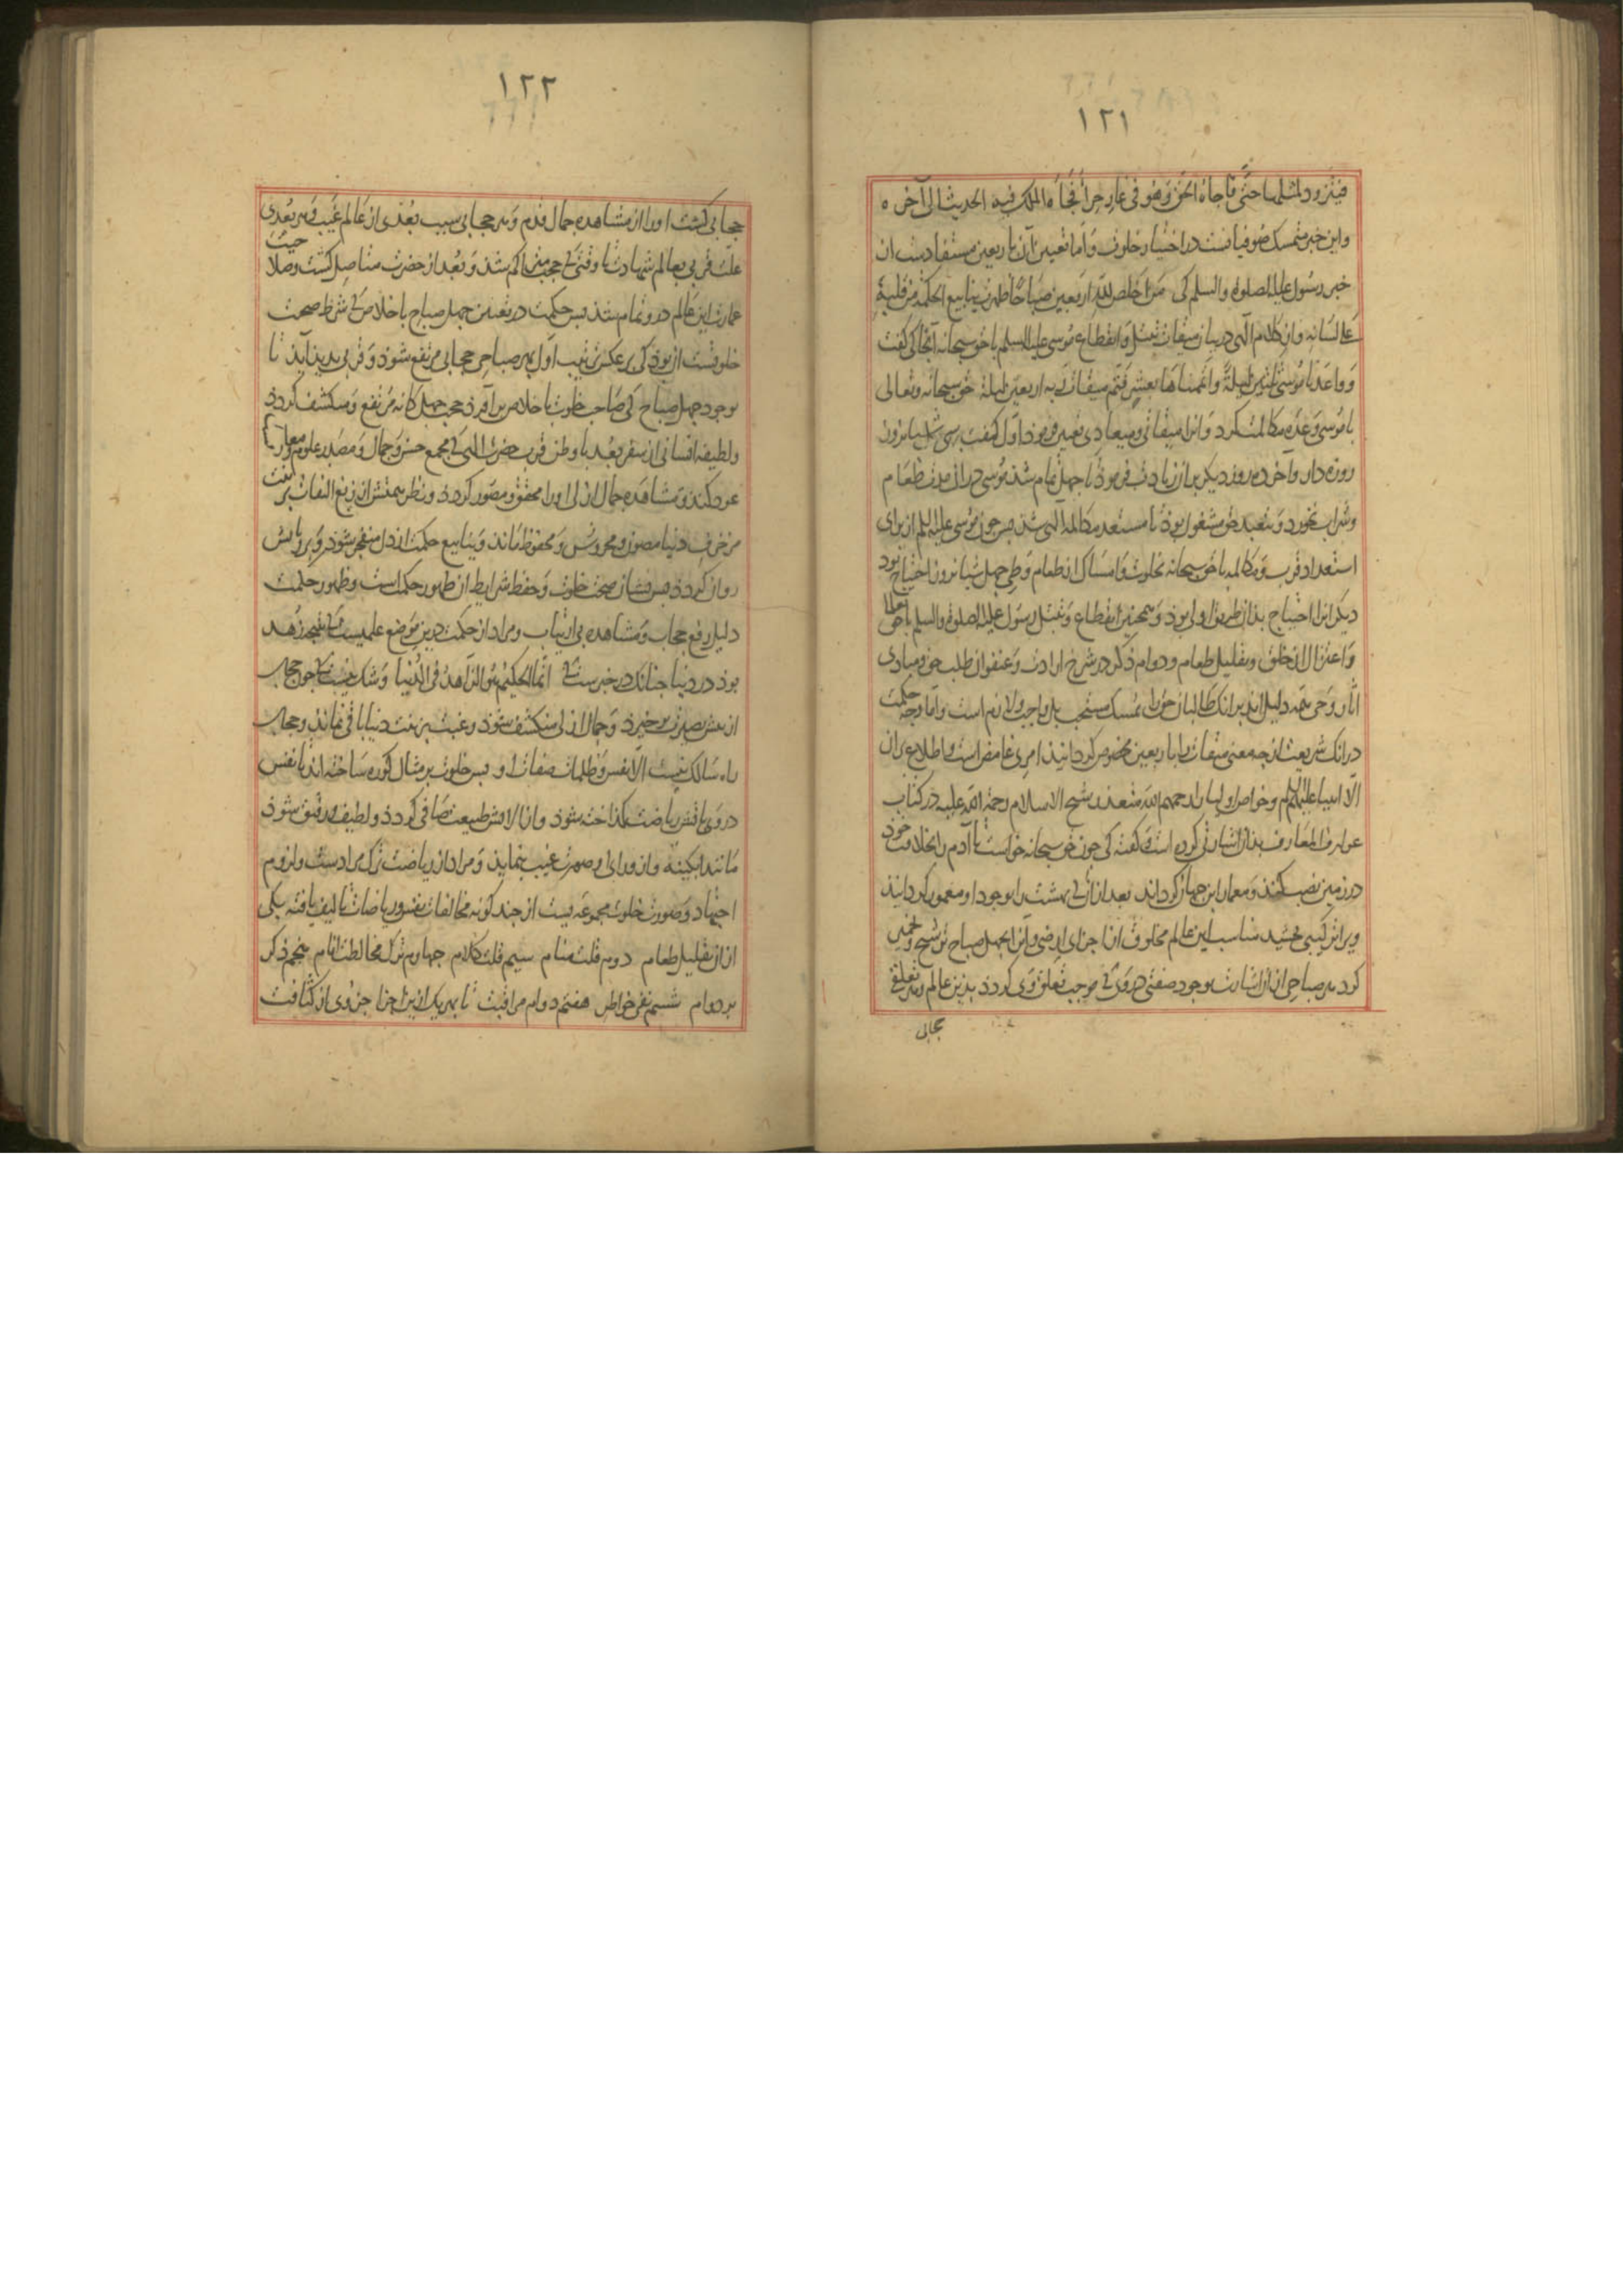 ١٢١
فیتزود لمثلها حتّی فاجاه الحق وهو فی غار حرا فجاءه الملک فیه الحدیث الی آخره
واین خبر متمسک صوفیانست در اختیار خلوت واما تعیین آن باربعین مستفادست از
خبر رسول علیه الصلوة والسلم کی من اخلص لله اربعین صباحا ظهرت ینابیع الحکمة من قلبه
علی لسانه واز کلام الهی در بیان میقات تبتل وانقطاع موسی علیه السلم با حق سبحانه آنجا کی گفت
وواعدنا موسی ثلثین لیلة واتممناها بعشر فتم میقات ربه اربعین لیلة حق سبحانه وتعالی
با موسی وعده مکالمت کرد وانرا میقاتی ومیعادی تعیین فرمود اول گفت سی شبانروز
روزه دار وآخر ده روز دیکر بران زیادت فرمود تا چهل تمام شد موسی در ان مدت طعام
وشراب نخورد وبتعبد حق مشغول بوذ تا مستعد مکالمه الهی شذ پس چون موسی علیه السلم از برای
استعداد قرب ومکالمه با حق سبحانه بخلوت وامساک از طعام وطی چهل شبانروز احتیاج بود
دیکرانرا احتیاج بذان طریق اولی بوذ وهمچنین انقطاع وتبتل رسول علیه الصلوة والسلم با حق تعالی
واعتزال از خلق وتقلیل طعام ودوام ذکر در شرخ ارادت وعنفوان طلب حق ومبادی
اثار وحی همه دلیل اند برانک طالبان حق را این تمسک مستحب بل واجب ولازم است واما وجه حکمت
درانک شریعت از چه معنی میقات را باربعین مخصوص کردانیذ امری غامض است واطلاع بران
الّا انبیا علیهم السلم وخواص اولیا را رحمهم الله متعذر شیخ الاسلام رحمة الله علیه در کتاب
عوارف المعارف بذان اشارتی کرده است وکفته کی چون حق سبحانه خواست تا آدم را بخلافت خوذ
در زمین نصب کند ومعمار این جهان کرداند بعد ازان کی بهشت را بوجود او معمور کردانیذ
ویرا ترکیبی بخشید مناسب این عالم مخلوق از اجزای ارضی وآنرا بچهل صباح ترشیح وتخمیر
کرد هر صباحی ازان اشارت بوجود صفتی در وی کی موجب تعلق وی کردذ بذین عالم وهر تعلقی
حجابی
١٢٢
حجابی کشت اورا از مشاهده جمال قدم وهر حجابی سبب بعذی از عالم غیب وهر بعذی
علّت قربی بعالم شهادت تا وقتی کی حجب متراکم شذ وبعد از حضرت متاصل کشت وصلاحیت
عمارت این عالم درو تمام شذ پس حکمت در تعیین چهل صباح با خلاص کی شرط صحت
خلوتست آن بوذ کی بر عکس ترتیب اول بهر صباحی حجابی مرتفع شوذ وقربی پدیذ آیذ تا
بوجود چهل صباح کی صاحب خلوت باخلاص برآورذ حجب چهل کانه مرتفع ومنکشف کردذ
ولطیفه انسانی از سفر بعد با وطن قرب حضرت الهی کی مجمع حسن وجمال ومصدر علوم ومعارف
عود کند ومشاهده جمال ازلی اورا محقق ومصور کردذ ونظر همتش از زیغ التفات بزینت
مزخرف دنیا مصون ومحروس ومحفوظ ماند وینابیع حکمت از دل منفجر شوذ وبر زبانش
روان کردذ پس نشان صحت خلوت وحفظ شرایط آن ظهور حکمت است وظهور حکمت
دلیل رفع حجاب ومشاهده بی ارتیاب ومراد از حکمت درین موضع علمیست کی نتیجه زهد
بوذ در دنیا چنانک در خبرست کی انّما الحکیم هو الزاهد فی الدنیا وشک نیست کی چون حجاب
از پیش بصیرت برخیزذ وجمال ازلی منکشف شوذ رغبت بزینت دنیا باقی نماند وحجاب
راه سالک نیست الا نفس وظلمات صفات او پس خلوت بر مثال کوره ساخته اند تا نفس
در وی بآتش ریاضت کداخته شوذ واز آلایش طبیعت صافی کردذ ولطیف ورقیق شوذ
مانند ابکینه واز ورای او صورت غیب بنمایذ ومراد از ریاضت ترک مرادست ولزوم
اجتهاد وصورت خلوت مجموعه یست از چند کونه مخالفات نفس وریاضات تالیف یافته یکی
ازان تقلیل طعام دوم قلت منام سیم قلت کلام چهارم ترک مخالطت انام پنجم ذکر
بر دوام ششم نفی خواطر هفتم دوام مراقبت تا بهر یک ازین اجزا جزوی از کثافت